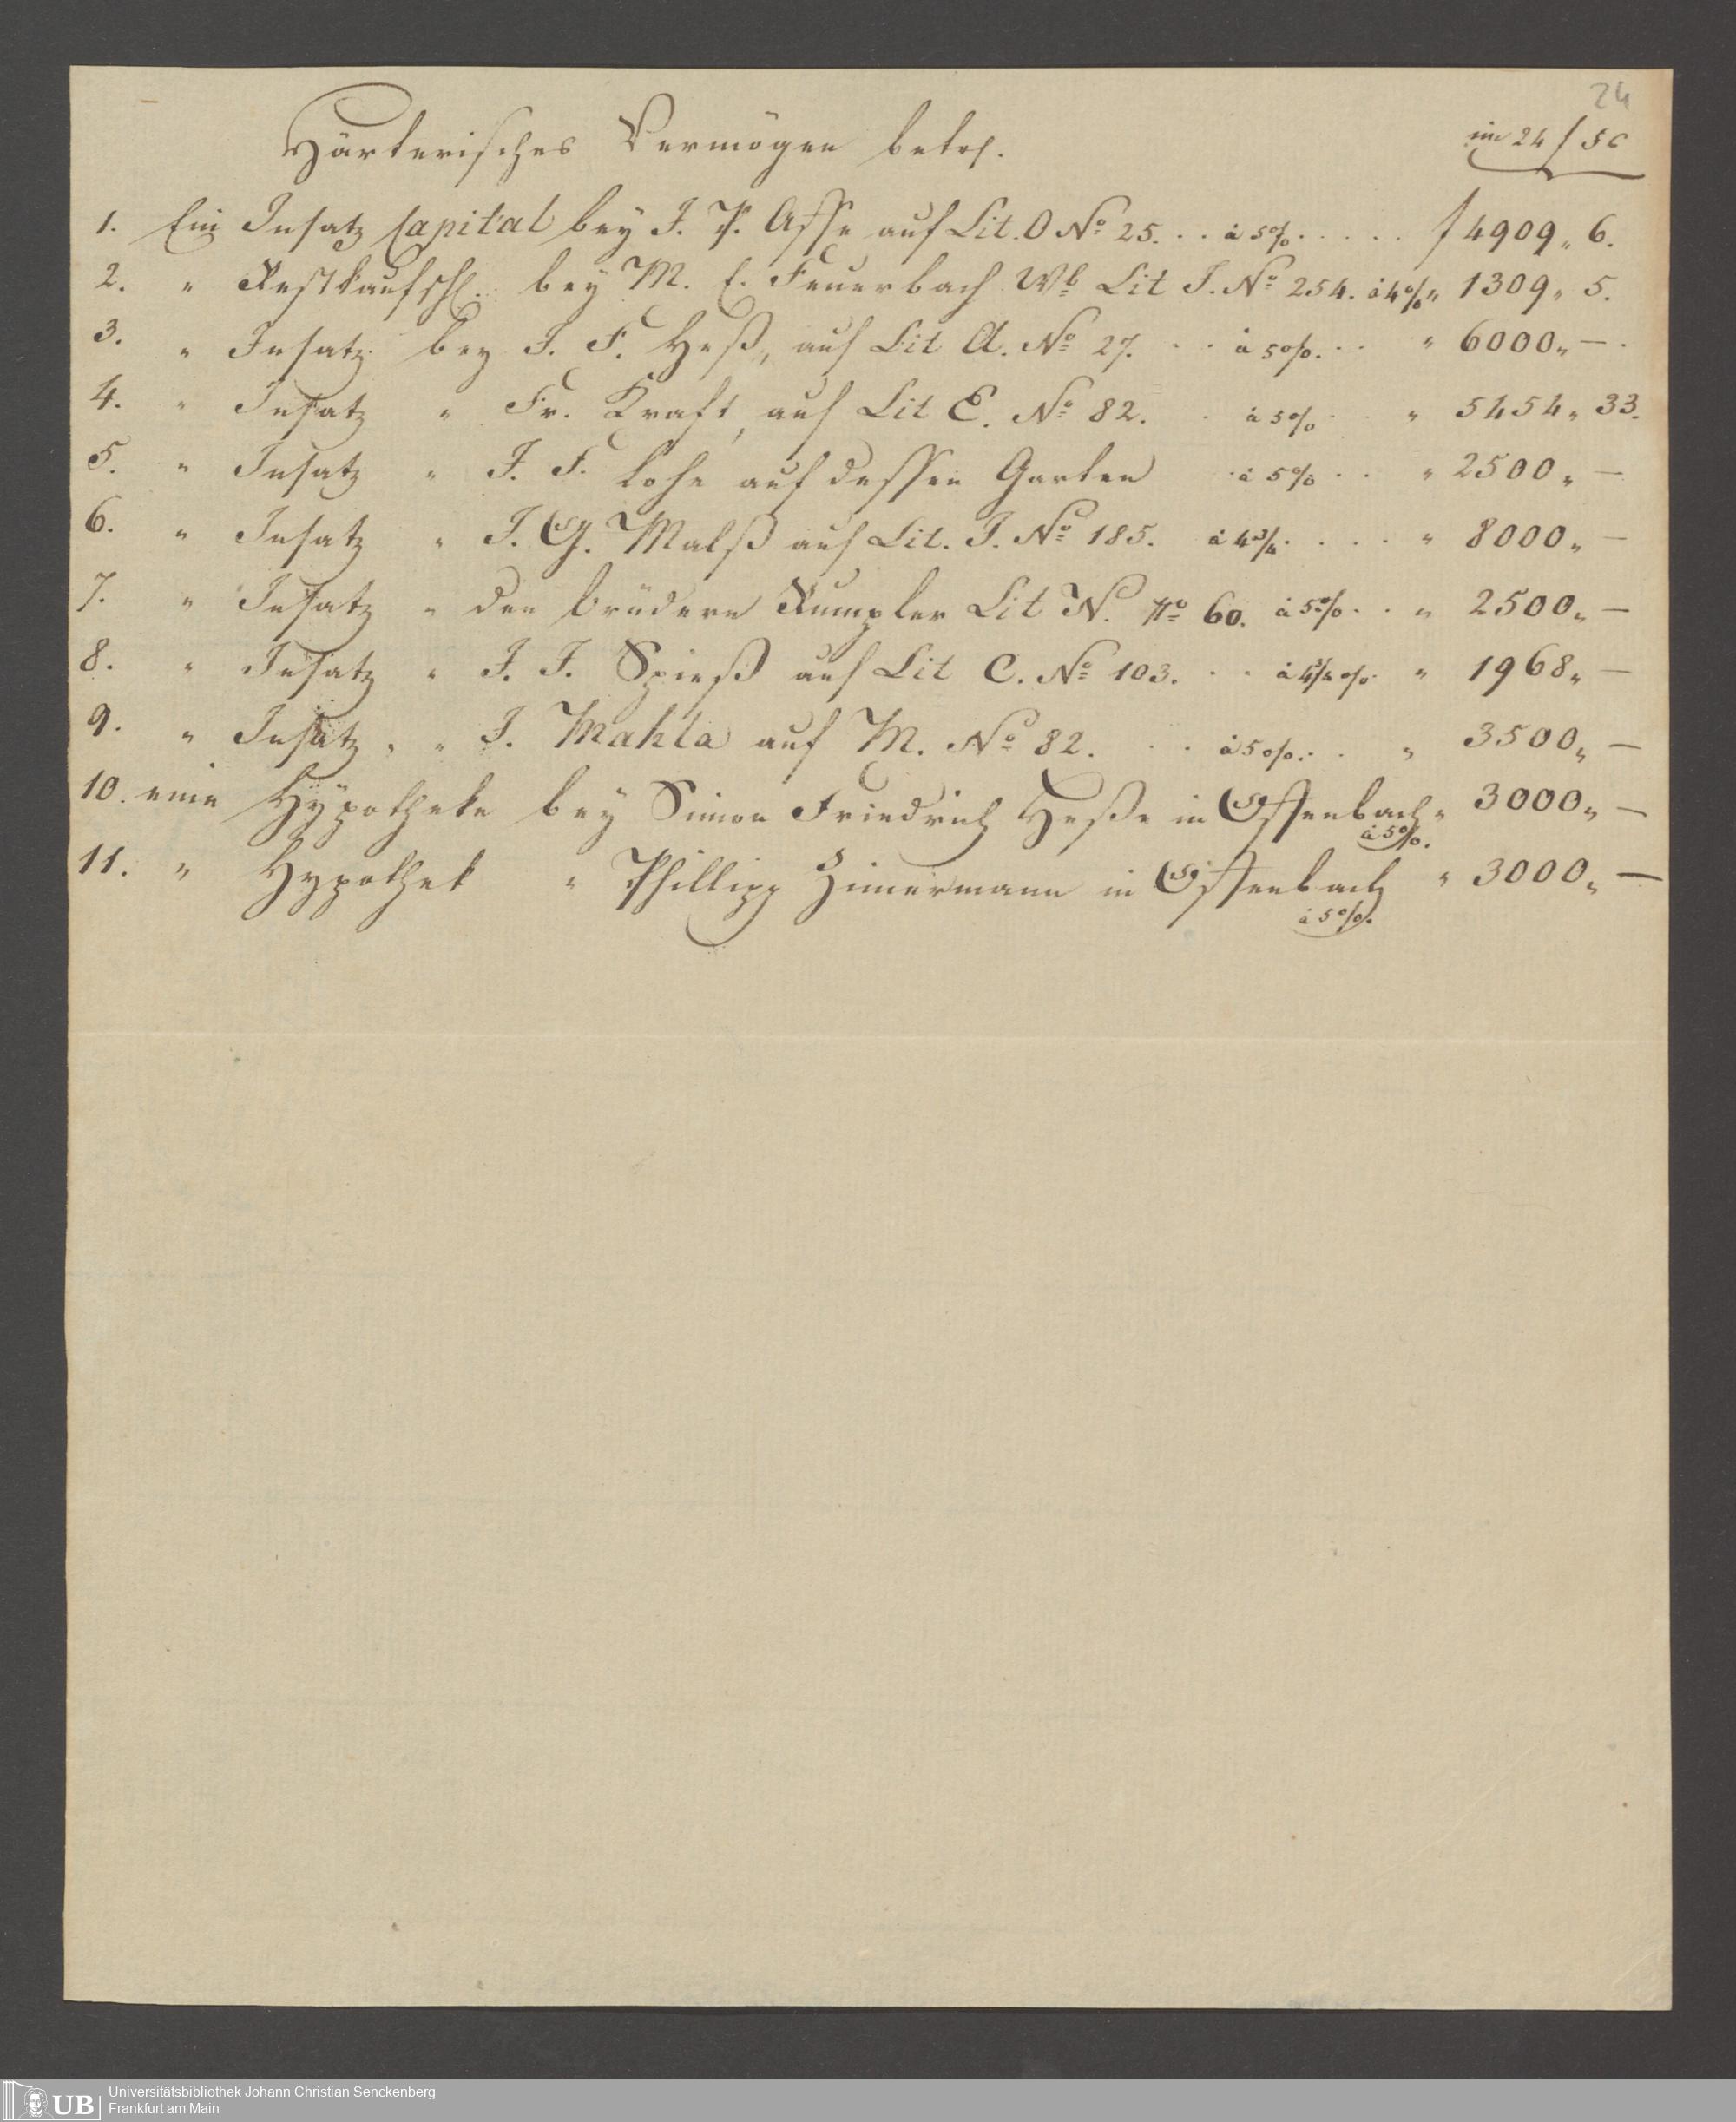 24
Härterisches Vermögen betrf.
im 24 f
1. Ein Insatz Capital bey J. P. Asse auf Lit. O No 25. . . à 5% . . . . . f 4909 „ 6.
2. " Restkaufschl. bey M. E. Feuerbach Wb Lit J. No 254. à 4% " 1309 „ 5.
3. " Insatz bey J. F. Heß, auf Lit A. No 27. . . à 5%. . . " 6000 „ — .
4. " Insatz " Fr. Kraft, auf Lit E. No 82. . à 5% " 5454 „ 33.
5. " Insatz " J. F. Lohe auf dessen Garten . à 5% . . " 2500 „ —
6. " Insatz " J. G. Malß auf Lit. J. No 185. à 4 3/4 . . . . " 8000 „ —
7. " Insatz " den brüdern Rumpler Lit N. No 60. à 5% . . " 2500 „ —
8. " Insatz " J. J. Spieß auf Lit C. No 103. . . à % " 1968 „ —
9. " Insatz " J. Mahla auf M. No 82. . . à 5%. . . " 3500 „ —
10. eine Hÿpotheke bey Simon Friedrich Heße in Offenbach " 3000 „ —
à 5%.
11. " Hypothek " Phillipp Zimermann in Offenbach " 3000 „ —
à 5%.
UB
Universitätsbibliothek Johann Christian Senckenberg
Frankfurt am Main